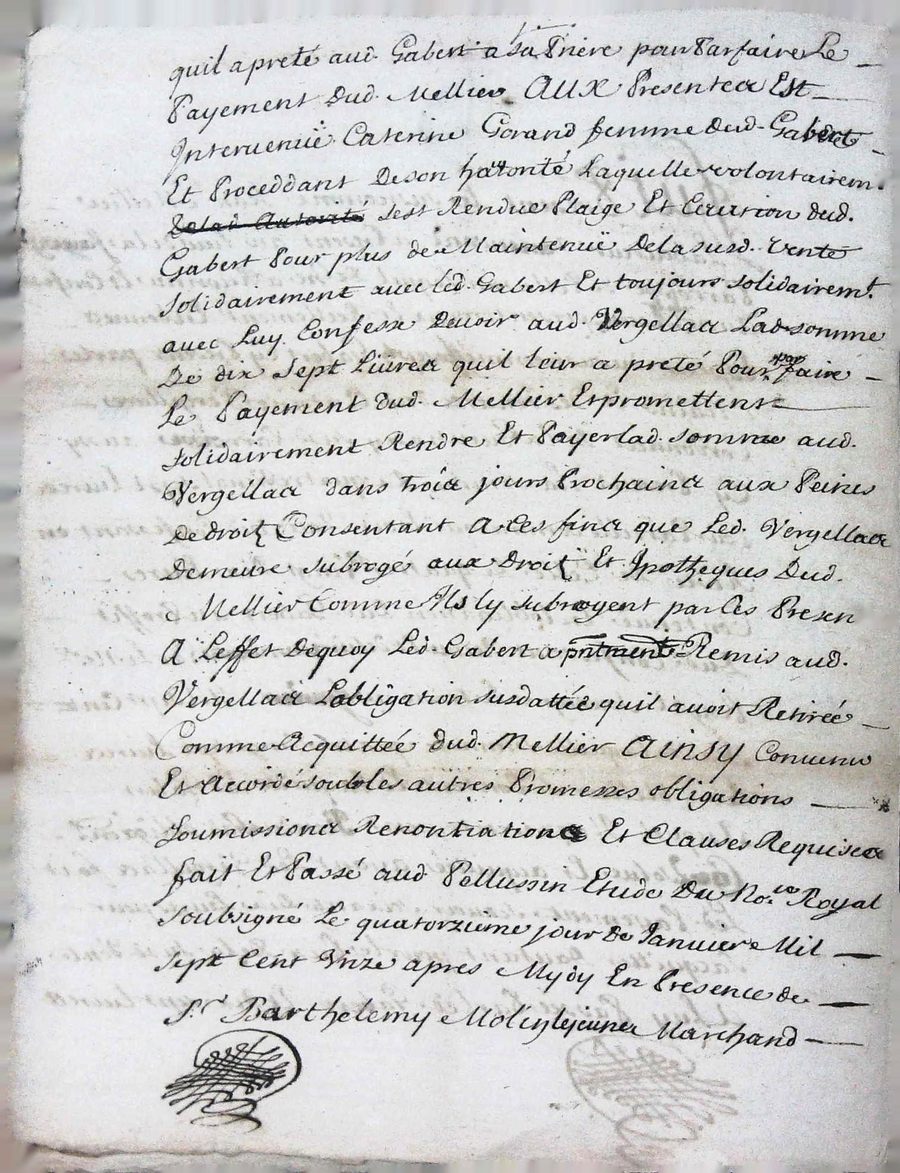 quil a preté aud. Gabert a sa Priere pour Parfaire Le
Payement dud. Mellier AUX Presentes Est
Intervenüe Caterine Gorand femme dud. Gabert
Et Proceddant De son hattorité Laquelle volontairem.
De lad Autorité sest Rendue Plaige Et Caution dud.
Gabert Pour plus de Maintenüe De la susd. vente
solidairement avec led. Gabert Et toujours solidairemt.
avec Luy Confesse Devoir aud. Vergellas Lad. somme
De dix sept Livres quil leur a preté Pour faire
Le Payement dud. Mellier Et promettent
solidairement Rendre Et Payer lad. somme aud.
Vergellas dans trois jours Prochains aux Peines
De droit Consentant A Ces fins que Led. Vergellas
Demeure subrogé aux Droit Et Ipotheques Dud.
Mellier Comme Ils ly subrogent par Ces Presen
A Leffet Dequoy Led. Gabert a pntment Remis aud.
Vergellas Lobligation susdattée quil avoit Retirée
Comme Acquittée dud. Mellier AINSY Convenu
Et Accordé soubs les autres Promesses obligations
soumissions Renontiations Et Clauses Requises
fait Et Passé aud Pellussin Etude Du No.re Royal
soubsigné Le quatorzieme jour De Janvier Mil
sept Cent Unze apres Mydy En Presence de
Sr. Barthelemy Molin lejeune Marchand